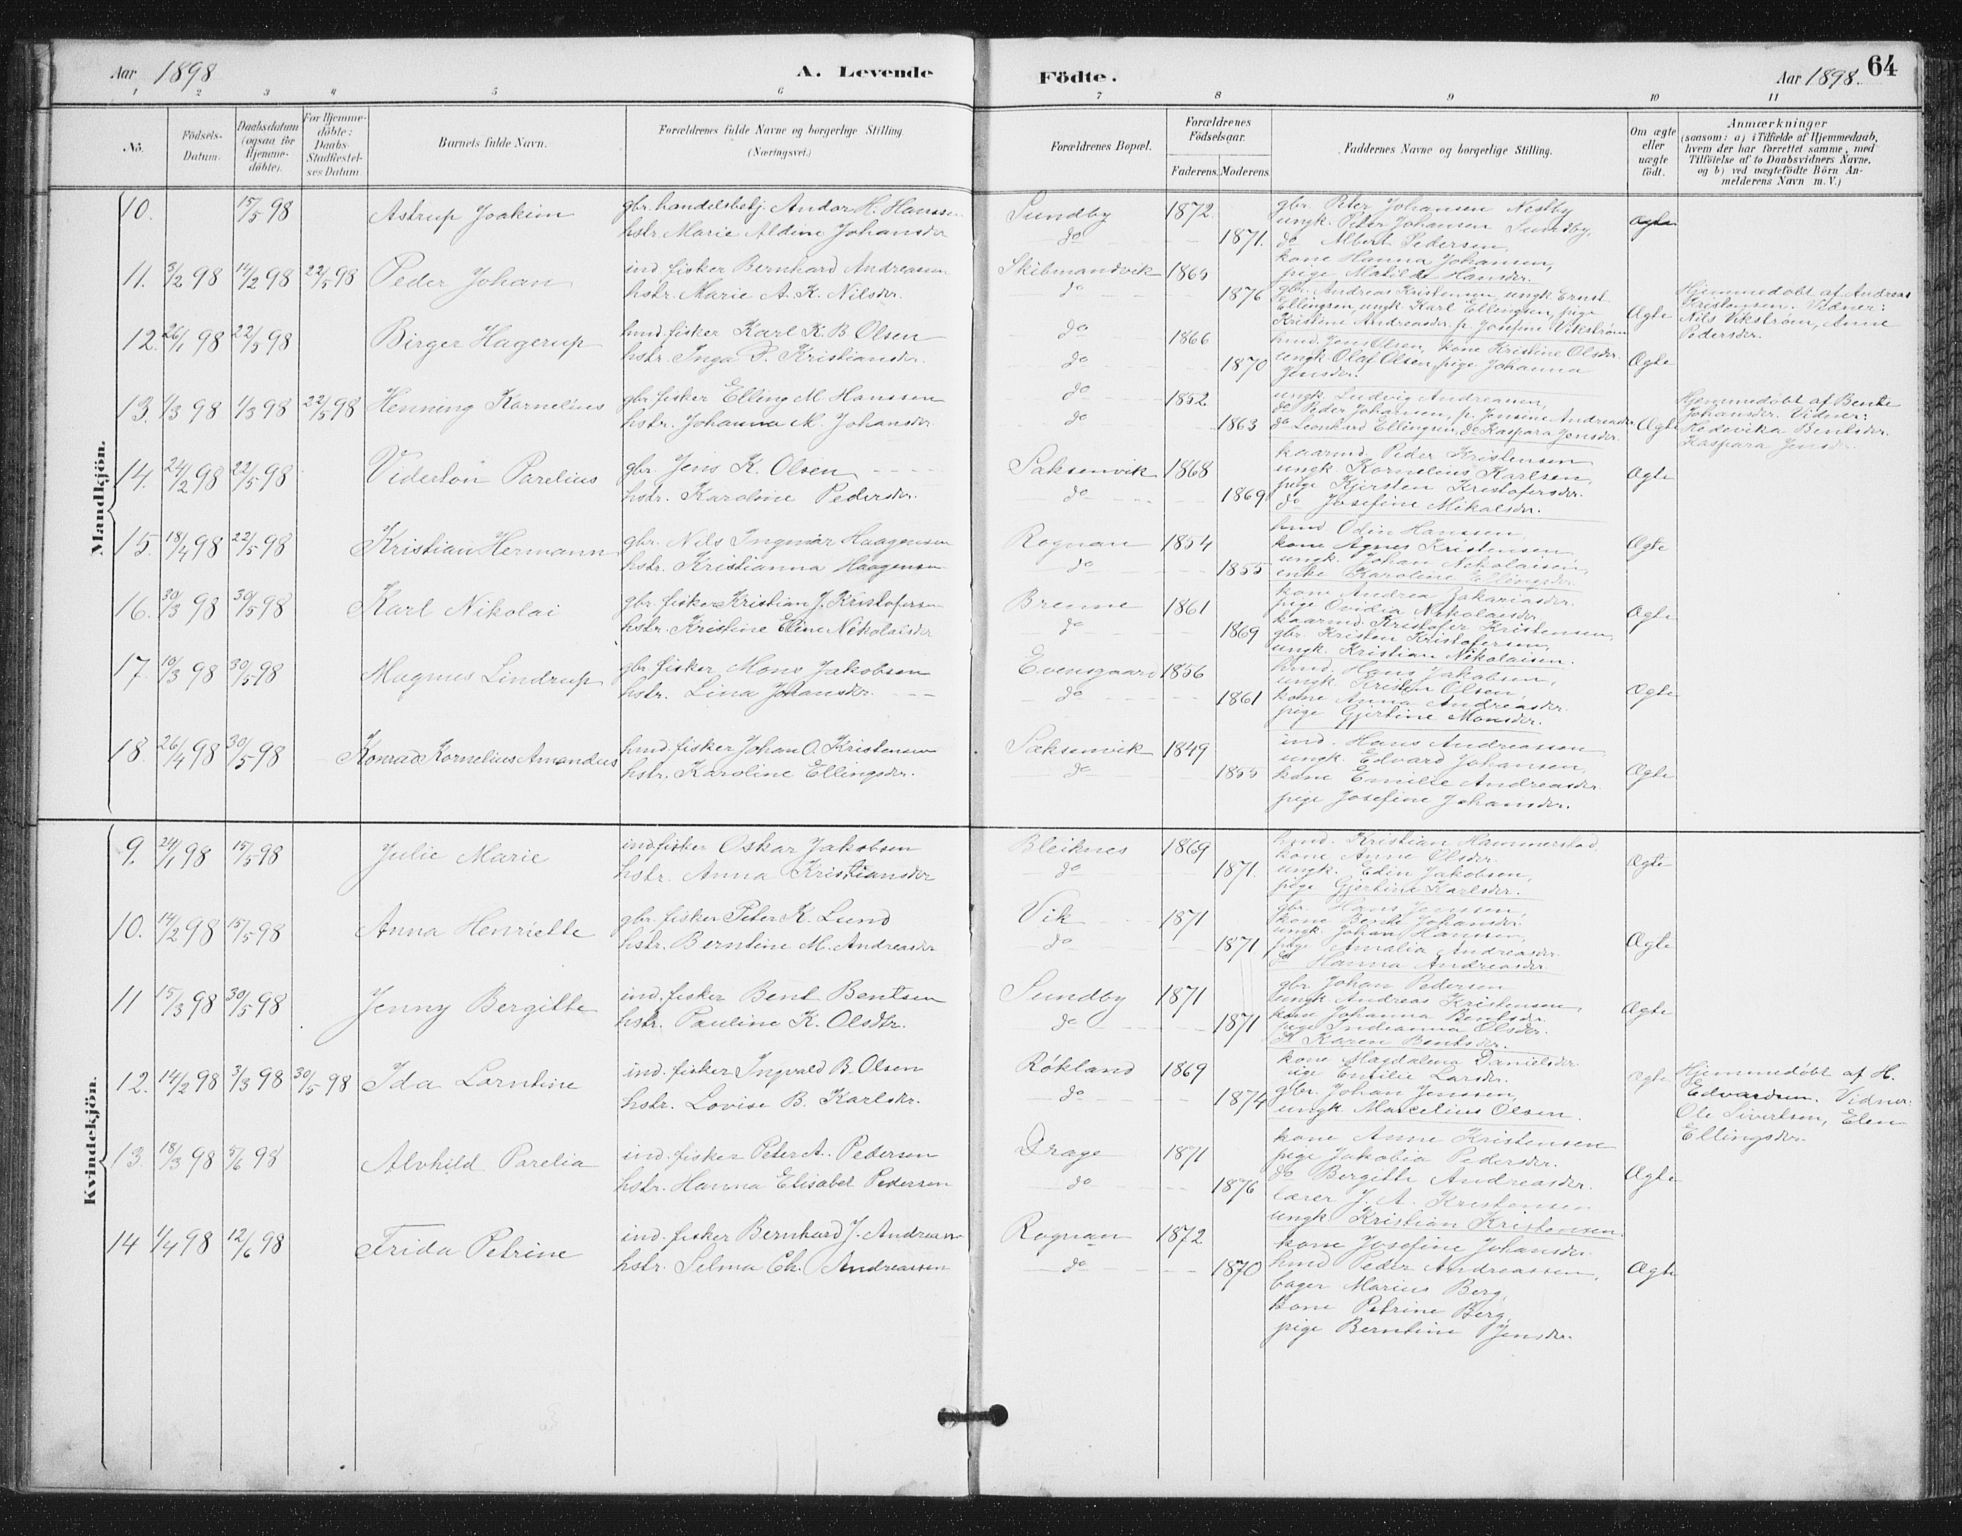 Aar 1898
A. Levende
Födte.
Aar 1898.
64
1 2 3 4 5 6 7 8 9 10 11
No.
Födsels-Datum.
Daabsdatum (ogsaa for Hjemme-döbte).
For Hjemme-döbte: Daabs-Stadfæstel-ses Datum
Barnets fulde Navn.
Forældrenes fulde Navne og borgerlige Stilling. (Næringsvei.)
Forældrenes Bopæl.
Forældrenes Födselsaar.
Faderens. Moderens.
Faddernes Navne og borgerlige Stilling.
Om ægte eller uægte födt.
Anmærkninger
(saasom: a) i Tilfælde af Hjemmedaab,
hvem der har forrettet samme, med
Tilföielse af to Daabsvidners Navne.
og b) ved uægtefödte Börn An-
melderens Navn m. V.)
Mandkjön.
10. 15/5 98 Astrup Joakim
gbr. handelsbetj. Andor H. Hanssen
hstr. Marie Aldine Johansdr
Sundby 1872
do 1871.
gbr. Peter Johansen Nestby
ungk. Peter Johansen Sundby,
do Albert Pedersen,
kone Hanna Johansen,
pige Matilde Hansdr.
Ægte
11. 3/2 98 14/2 98 22/5 98 Peder Johan
ind. fisker Bernhard Andreassen
hstr. Marie A. K. Nilsdr.
Skibmandvik 1865
do 1876
gbr. Andreas Kristensen, ungk. Ernst
Ellingsen, ungk. Karl Ellingsen, pige
Kristine Andreasdr. p. Josefine Vikstrøm
Ægte
Hjemmedøbt af Andreas
Kristensen. Vidner:
Nils Vikstrøm, Anne
Pedersdr.
12. 26/1 98 22/5 98 Birger Hagerup
hmd. fisker Karl K. B. Olsen
hstr. Inga P. Kristiansdr.
do 1866
do 1870
hmd. Jens Olsen, kone Kristine Olsdr.
ungk. Olaf Olsen, pige Johanna
Jensdr.
Ægte
13. 1/3 98 1/3 98 22/5 98 Henning Kornelius
gbr. fisker Elling M. Hanssen
hstr. Johanna M. Johansdr
do 1852
do 1863
ungk. Ludvig Andreasen,
do Peder Johansen, p. Jensine Andreasdr
do Leonhard Ellingsen, do Kaspara Jensdr.
Ægte
Hjemmedøbt af Bente
Johansdr. Vidner:
Hedevika Bentsdr.
Kaspara Jensdr.
14. 24/2 98 22/5 98 Viderton Parelius
gbr. Jens K. Olsen
hstr. Karoline Pedersdr.
Saksenvik 1868
do 1869
kaarmd. Peder Kristensen
ungk. Kornelius Karlsen,
pige Kjersten Kristofersdr.
do Josefine Mikalsdr.
Ægte
15. 18/4 98 22/5 98 Kristian Hermann
gbr. Nils Ingmar Haagensen
hstr. Kristianna Haagensen
Rognan 1854
do 1855
hmd. Odin Hanssen,
kone Agnes Kristensen
ungk. Johan Nikolaisen,
enke Karoline Ellingsdr.
Ægte
16. 30/3 98 30/5 98 Karl Nikolai
gbr. fisker Kristian J. Kristofersen
hstr. Kristine Eline Nikolaisdr
Brenne 1861
do 1869
kone Andrea Zakariasdr.
pige Ovidia Nikolaisdr
kaarmd. Kristofer Kristensen,
gbr. Kristen Kristofersen,
ungk. Kristian Nikolaisen.
Ægte
17. 10/3 98 30/5 98 Magnus Lindrup
gbr. fisker Mons Jakobsen
hstr. Lina Johansdr.
Evensgaard 1856
do 1861
hmd. Hans Jakobsen,
ungk. Kristen Olsen,
kone Anna Andreasdr.
pige Gjertine Monsdr.
Ægte
18. 26/4 98 30/5 98 Konrad Kornelius Amandus
hmd. fisker Johan O. Kristensen
hstr. Karoline Ellingsdr.
Saksenvik 1849
do 1855
ind. Hans Andreassen
ungk. Edvard Johansen,
kone Emilie Andreasdr
pige Josefine Johansdr.
Ægte
Kvindekjön.
9. 24/1 98 15/5 98 Julie Marie
ind. fisker Oskar Jakobsen
hstr. Anna Kristiansdr
Bleiknes 1869
do 1871.
hmd. Kristian Hammerstad
kone Anne Olsdr.
ungk. Edin Jakobsen,
pige Gjertine Karlsdr.
Ægte
10. 14/2 98 15/5 98 Anna Henriette
gbr. fisker Peter K. Lund
hstr. Berntine M. Andreasdr
Vik 1871
do 1871
gbr. Hans Jenssen,
kone Bente Johansdr.
ungk. Johan Hanssen,
pige Amalia Andreasdr
do Hanna Andreasdr.
Ægte
11 15/3 98 30/5 98 Jenny Bergitte
ind. fisker Bent Bentsen
hstr. Pauline K. Olsdtr.
Sundby 1871
do 1871
gbr Johan Pedersen
ungk. Andreas Kristensen,
kone Johanna Bentsdr
pige Indianna Olsdr.
do Karen Bentsdr.
Ægte
12. 14/2 98 3/3 98 30/5 98 Ida Lorntine
ind. fisker Ingvald B. Olsen
hstr. Lovise B. Karlsdr.
Røkland 1869
do 1874
kone Magdalena Danielsdr
pige Emilie Larsdr.
gbr. Johan Jenssen,
ungk. Marcelius Olsen.
Ægte
Hjemmedøbt af H.
Edvardsen. Vidner:
Ole Sivertsen, Elen
Ellingsdr.
13. 18/3 98 5/6 98 Alvhild Parelia
ind. fisker Peter A. Pedersen
hstr. Hanna Elisabet Pedersen
Drage 1871
do 1876
kone Anne Kristensen
pige Jakobia Pedersdr.
do Bergitte Andreasdr.
lærer J. A. Kristensen
ungk. Kristian Kristensen.
Ægte
14 1/4 98 12/6 98 Frida Petrine
ind. fisker Bernhard J. Andreassen
hstr. Selma Ch. Andreassen
Rognan 1872
do 1870
kone Josefine Johansdr.
hmd Peder Andreassen,
bager Marius Berg,
kone Petrine Berg,
pige Berntine Jensdr.
Ægte